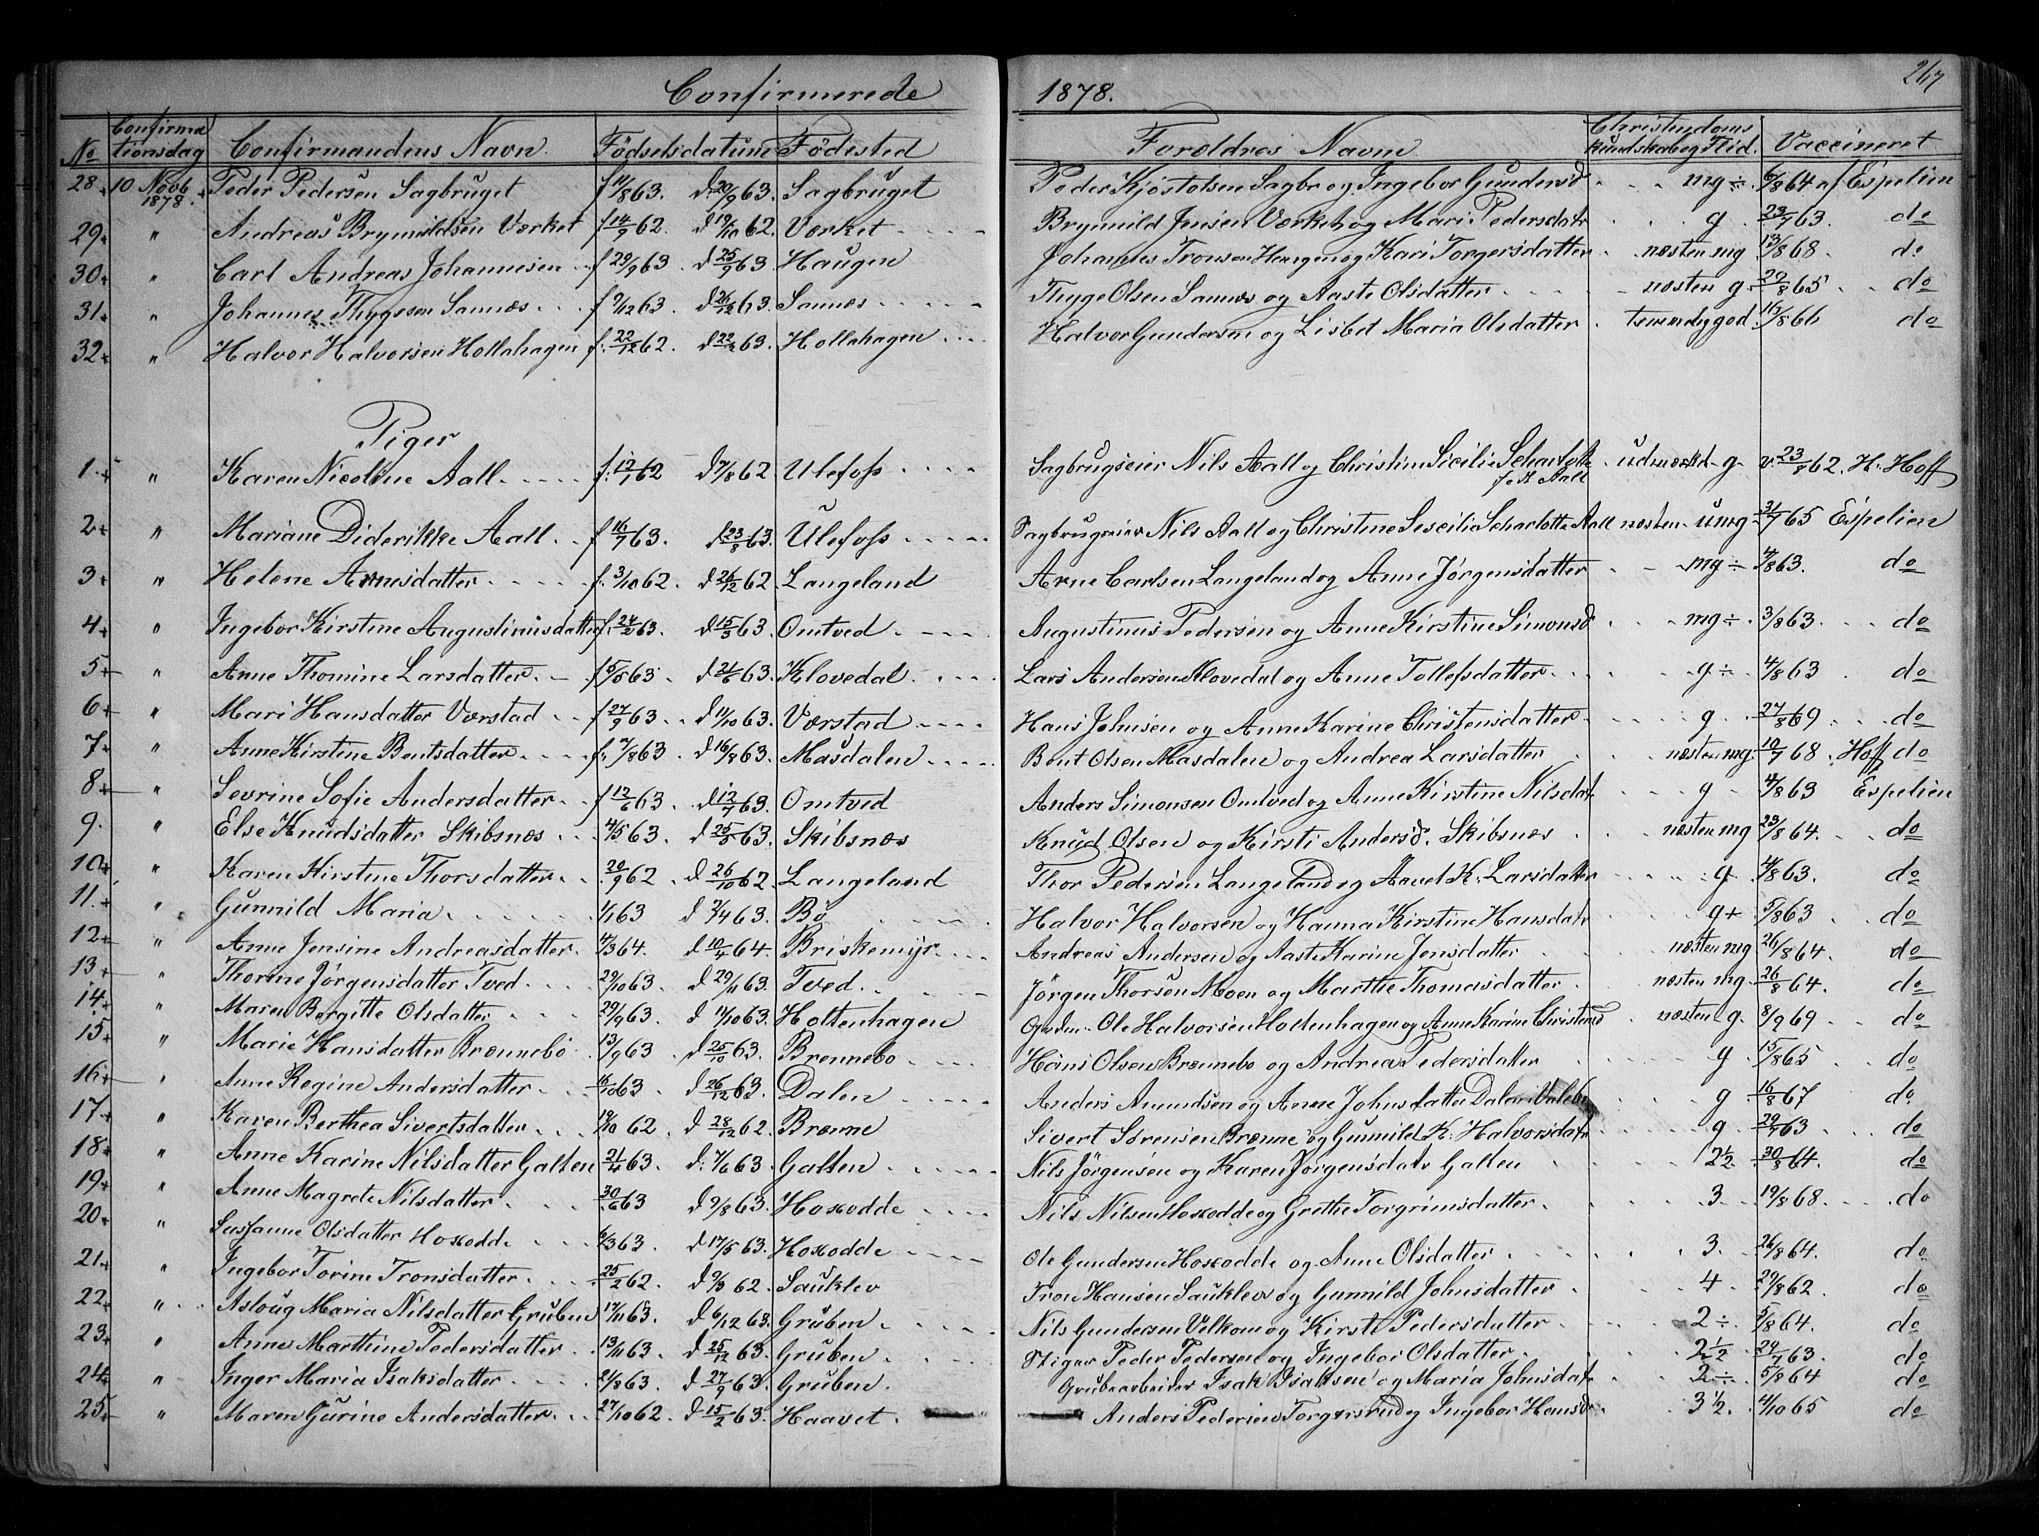 Confirmerede 1878. 267
No Confirmationsdag Confirmandens Navn Födselsdatum Födested Forældres Navne Christendoms Kundskab og Flid. Vaccineret
28. 10 Novb 1878. Peder Pedersen Sagbruget 63. d. 20/9 63. Sagbruget Peder Kjöstolsen Sagbr og Ingebor Gundersd mg ÷ 6/8 64 af Espelien
29. " Andreas Brynildsen Værket f 14/9 62. d 19/10 62. Værket Brynild Jensen Værket og Mari Pedersdatr g. 23/7 63. do
30. " Carl Andreas Johannesen f 29/9 63 d 25/9 63. Haugen Johannes Tronsen Haugen og Kari Torgersdatter næsten mg 13/8 68. do
31. " Johannes Thygesen Sannæs f 9/12 63 d 26/12 63. Sannæs Thyge Olsen Sannæs og Aaste Olsdatter næsten g. 29/8 65 do
32. " Halvor Halvorsen Hollahagen f. 22/12 62. d 22/2 63. Hollahagen Halvor Gundersen og Lisbet Maria Olsdatter temmelig god. 16/8 66 do
Piger
1. " Karen Nicoline Aall f. 12/7 62 d 7/8 62. Ulefoss Sagbrugseier Nils Aall og Christine Sicilie Scharlotte f. Aall udmærket g. v. 23/8 62. H. Hoff
2. " Mariane Diderikke Aall f 16/7 63. d 23/8 63. Ulefoss Sagbrugseier Nils Aall og Christine Sescilie Scharlotte Aall næsten umg. 21/7 65 Espelien
3. " Helene Arnesdatter f. 3/10 62. d 26/12 62 Langeland Arne Carlsen Langeland og Anne Jørgensdatter mg ÷ 4/8 63. do
4. " Ingebor Kirstine Augustinusdatter f. 24/2 63. d 15/3 63. Omtved Augustinus Pedersen og Anne Kirstine Simonsd mg ÷ 3/8 63. do
5. " Anne Thomine Larsdatter f 5/5 63. d 21/6 63. Klovedal Lars Andersen Klovedal og Anne Tollefsdatter g ÷ 4/8 63 do
6. " Mari Hansdatter Værstad f 27/9 63. d 11/10 63. Værstad Hans Johnsen og Anne Karine Christensdatter g 27/8 69 do
7. " Anne Kirstine Bentsdatter f. 7/8 63 d 16/8 63. Masdalen Bent Olsen Masdalen og Andrea Larsdatter næsten mg. 10/7 68. Hoff do
8. " Sevrine Sofie Andersdatter f 12/6 63. d 12/7 63. Omtved Anders Simonsen Omtved og Anne Kirstine Nilsdatr g 4/8 63 Espelien
9. " Else Knudsdatter Skibsnæs 4/5 63. d 25/5 63. Skibsnæs Knud Olsen og Kirsti Andersd. Skibsnæs næsten mg 23/8 64. do
10. " Karen Kirstine Thorsdatter 20/9 62 d 26/10 62. Langeland Thor Pedersen Langeland og Aavel K. Larsdatter g 4/8 63. do
11. " Gunnild Maria 1/1 63 d 2/4 63. Bö Halvor Halvorsen og Hanna Kirstine Hansdatr g+ 5/8 63 do
12. " Anne Jensine Andreasdatter 4/3 64. d 10/4 64. Briskemyr Andreas Andersen og Aaste Karine Jensdatter næsten mg 26/8 64. do
13. " Thorine Jørgensdatter Tved 29/10 63. d 29/11 63. Tved Jörgen Thorsen Moen og Marthe Thomasdatter næsten mg. 26/8 64. do
14. " Maren Bergitte Olsdatter 29/9 63. d 11/10 63. Holtenhagen Ole Halvorsen Holtenhagen og Anne Karine Christensd næsten g. 8/9 69 do
15. " Marie Hansdatter Brænnebö 13/9 63 d 25/10 63. Brennebo Hans Olsen Brænnebo og Andrea Pedersdatter g 15/8 65 do
16. " Anne Regine Andersdatter 16/10 63 d 26/12 63. Dalen Anders Amundsen og Anne Johnsdatter Dalen Valebø g 16/8 67 do
17. " Karen Berthea Sivertsdatter 19/10 62 d 28/12 62. Brænne Sivert Sørensen Brænne og Gunnild K. Halvorsdatr g. 29/7 63 do
18. " Anne Karine Nilsdatter Galten 21/4 63. d. 7/6 63. Galten Nils Jörgensen og Karen Jørgensdatr Galten 2½. 30/8 64. do
19. " Anne Magrete Nilsdatter 30/6 63 d 9/8 63. Hoxodde Nils Nilsen Hoxodde og Grethe Torgrimsdatter 3. 19/8 68. do
20. " Sussanne Olsdatter Hoxodde 6/3 63. d 17/5 63. Hoxodde Ole Gundersen Hoxodde og Anne Olsdatter 3. 26/8 64. do
21. " Ingebor Torine Tronsdatter 25/2 62. d 9/3 62. Sauklev Tron Hansen Sauklev og Gunnild Johnsdatter 4 29/8 62 do
22. " Asloug Maria Nilsdatter Gruben 17/10 63. d 6/12 63. Gruben Nils Gundersen Velkom og Kirsti Pedersdatter 2 ÷ 5/8 64. do
23. " Anne Marthine Pedersdatter 13/11 63. d 25/12 63. Gruben Stiger Peder Pedersen og Ingebor Olsdatter 2½ 29/7 63. do
24. " Inger Maria Isaksdatter 2/8 63. d 27/9 63. Gruben. Grubearbeider Isak Isaksen og Maria Johnsdatr 2 ÷ 5/8 64 do
25. " Maren Gurine Andersdatter 27/10 62. d 15/2 63. Haavet Anders Pedersen Torgersrud og Ingebor Hansd 3½. 4/10 65 do